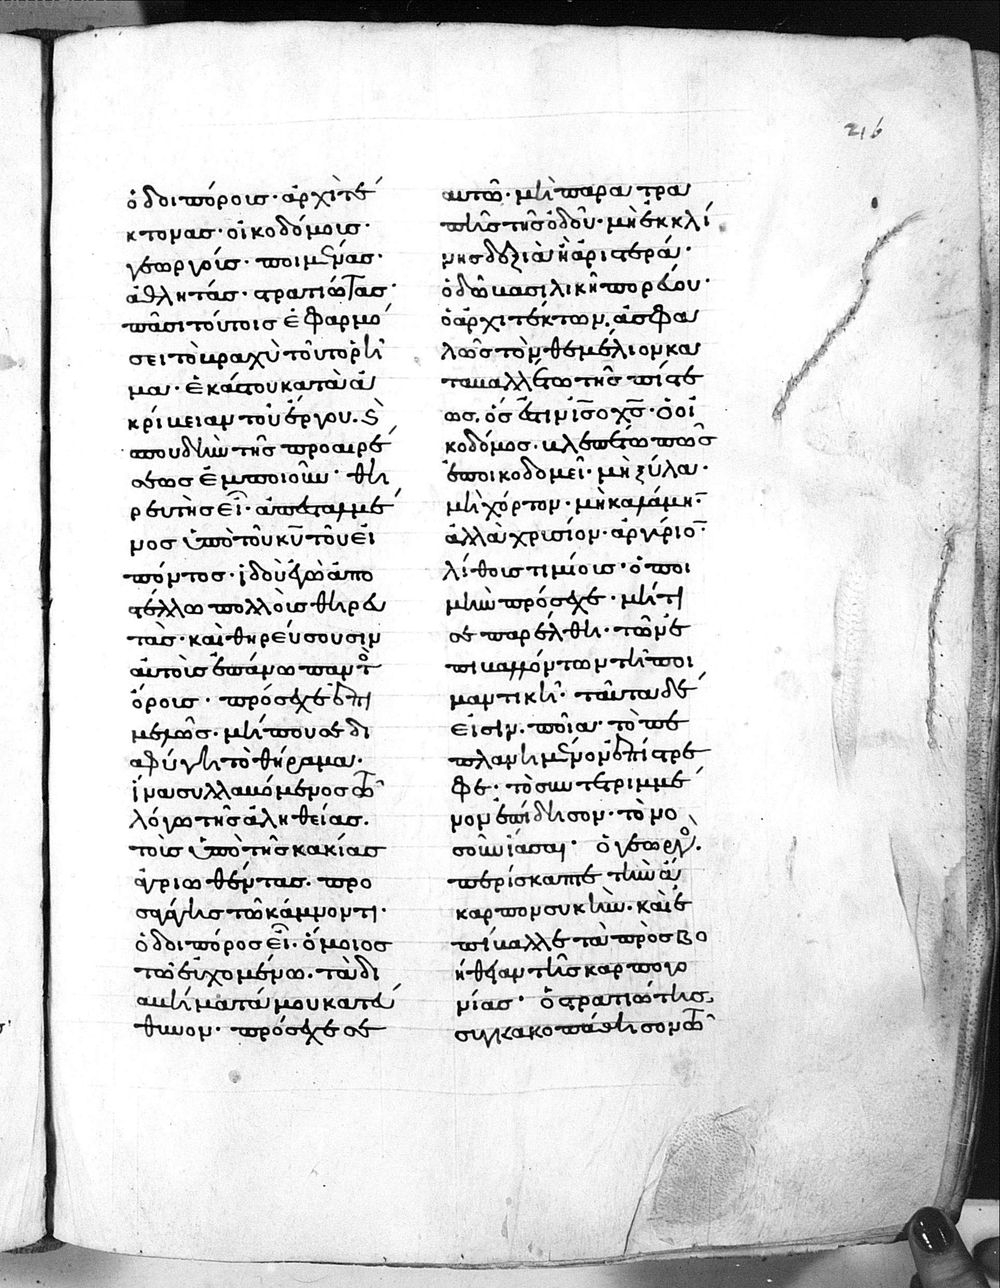 216
ὁδοιπόροις· ἀρχιτέ
κτονας· οἰκοδόμοις·
γεωργοίς· ποιμένας·
ἀθλητάς· στρατιώτας·
πᾶσι τούτοις ἐφαρμό
σει τὸ βραχὺ τοῦτο ῥῆ
μα· ἑκάστου κατὰ ἀ
κρίβειαν τοῦ ἔργου. κὶ
σπουδὴν τῆς προαιρέ
σεως ἐμποιοῦν· θη
ρευτὴς εἶ· ἀπεσταλμέ
νος ὑπὸ τοῦ κυ τοῦ εἰ
πόντος· ἰδοὺ ἐγὼ ἀπο
στέλλω πολλοὶς θηρευ
τὰς· καὶ θηρεύσουσιν
αὐτοὶς ἐπάνω παντὸ
ὄροις· πρόσεχε ἐπι
μελῶς· μή που σε δι
αφύγη τὸ θήραμα.
ἵνα συλλαβόμενος τῶ
λόγω τῆς ἀληθείας.
τοὶς ὑπὸ τῆς κακίας
ἀγριωθέντας. προ
σαγάγης τῶ κάμνοντι·
ὁδοιπόρος εἶ· ὅμοιος
τῶ εὐχομένω. τὰ δι
αβήματά μου κατεύ
θυνον· πρόσεχε σε
αυτῶ· μὴ παρατρα
πῆς τῆς ὁδοῦ· μὴ ἐκκλί
νης δεξιὰ ἢ ἀριστερά·
ὁδῶ βασιλικῆ πορεύου·
ὁ ἀρχιτέκτων, ἀσφα
λῶς τὸν θεμέλιον κα
ταβαλλέτω τῆς πίστε
ως. ὅς ἐστιν ις ὁ χς· ὁ οἰ
κοδόμος. βλεπέτω πῶς
ἐποικοδομεῖ· μὴ ξύλα·
μὴ χόρτον· μὴ καλάμην·
ἀλλὰ χρισίον· ἀργύριον·
λίθοις τιμίοις· ὁ ποι
μὴν πρόσεχε· μή τι
σε παρέλθη· τῶν ἐ
πιβαλλόντων τῆ ποι
μαντικῆ· ταῦτα δέ
εἰσὶν. ποῖα· τὸ πε
πλανημένον ἐπίστρε
φε· τὸ συντετριμμέ
νον ἐπίδησον· τὸ νο
σοῦν ἴασαι· ὁ γεωργὸς.
περίσκαπτε τὴν ἄ
καρπον συκῆν. καὶ ἐ
πίβαλλε τὰ πρὸς βο
ήθειαν τῆς καρπογο
νίας· ὁ στρατιώτης.
συγκακοπάθησον τῶ